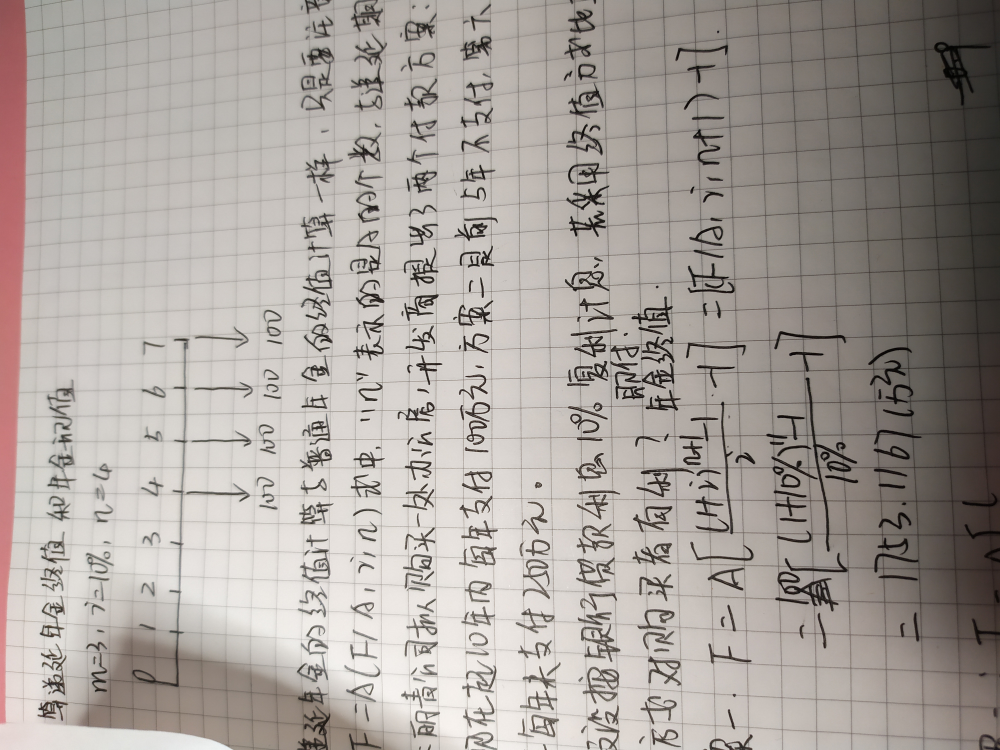 算递延年金终值和年金现值
m=3, i=10%, n=4
0 1 2 3 4 5 6 7
100 100 100 100
递延年金的终值计算与普通年金的终值计算一样，只是要注意
F=A(F/A, i, n) 式中，"n"表示的是A的个数，与递延期
丽青公司拟购买一处办公房，开发商提出了两个付款方案：
现在起10年内每年支付100万元，方案二是前5年不支付，第六
每年末支付250万元。
设按银行贷款利息10%复利计息，若采用终值方式比
对购买者有利？ 即付年金终值.
F=A[(1+i)^n+1-1/i-1]=[(F/A, i, n+1)-1].
=100[(1+10%)^11-1/10%-1]
=1753.1167(万元)